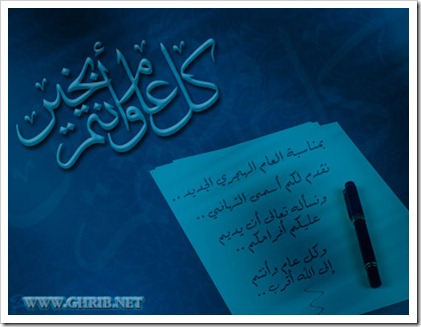 كل عام وأنتم بخير
بمناسبة العام الهجري الجديد ..
نقدم لكم أسمى التهاني ..
ونسأله تعالى أن يديم
عليكم أفراحكم ..
وكل عام وأنتم
إلى الله أقرب ..
WWW.GHRIB.NET